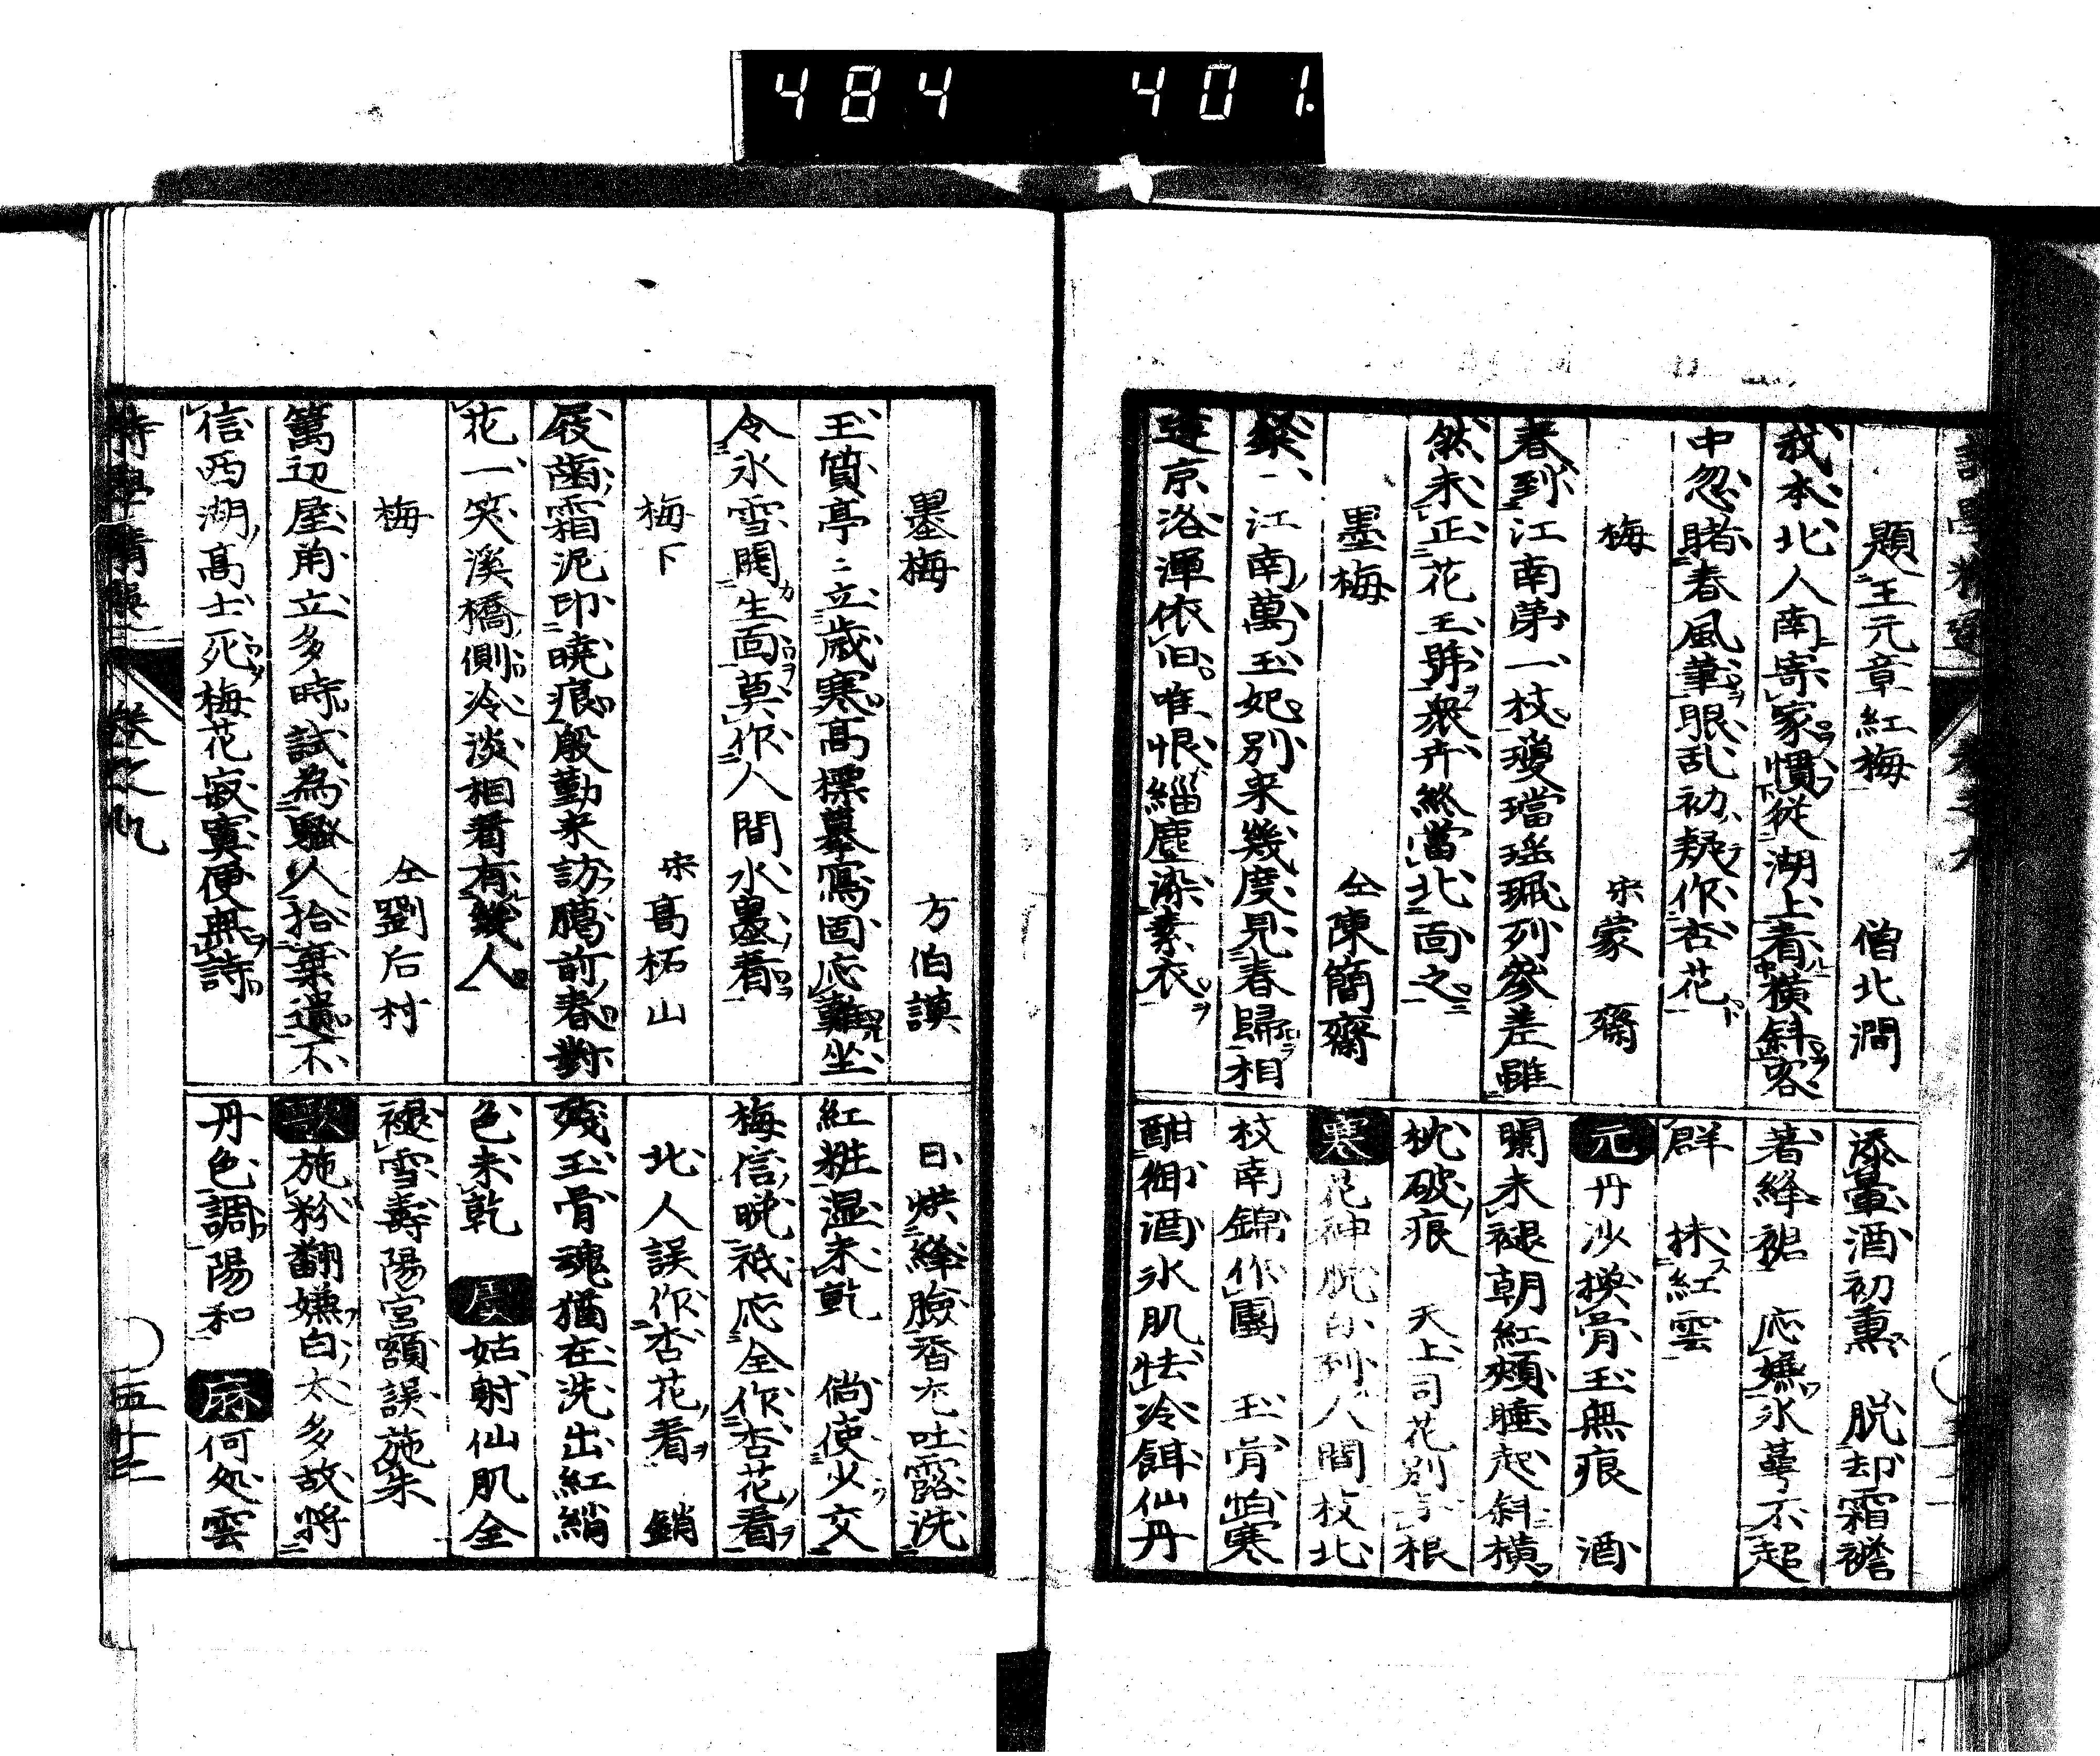 484 401.
題王元章紅梅 僧北澗
我本北人南寄家慣従湖上看横斜客
中忽睹春風華眼乱初疑作杏花
梅 宋蒙齋
春到江南第一枝瓊璫瑶珮列參差雖
然未正花王号衆卉終當北面之
墨梅 仝陳簡齋
粲〻江南萬玉妃別来幾度見春歸相
逢京洛渾依旧唯恨緇塵染素衣
添暈酒初熏 脱却霜襜
著絳裙 応嫌氷萼不超
群 抹紅雲
元 丹沙換骨玉無痕 酒
闌未褪朝紅頰睡起斜横
枕破痕 天上司花別予根
寒 花神脱白到人間枝北
枝南錦作團 玉骨怕寒
酣御酒氷肌怯冷餌仙丹
墨梅 方伯謨
玉質亭〻立歳寒高標摹寫固応難坐
令氷雪開生面莫作人間水墨看
梅下 宋高柘山
屐齒霜泥印曉痕殷勤来訪臈前春對
花一笑溪橋側冷淡相看有幾人
梅 仝劉后村
篱辺屋角立多時試為騒人拾棄遺不
信西湖高士死梅花寂寞便無詩
日烘絳臉香充吐露洗
紅粧湿未乾 倘使少交
梅信晩祇応全作杏花看
北人誤作杏花看 銷
残玉骨魂猶在洗出紅綃
色未乾 姑射仙肌全
褪雪壽陽宮額誤施朱
歌 施粉翻嫌白太多故將
丹色調陽和 麻 何処雲
卷之九
五十二